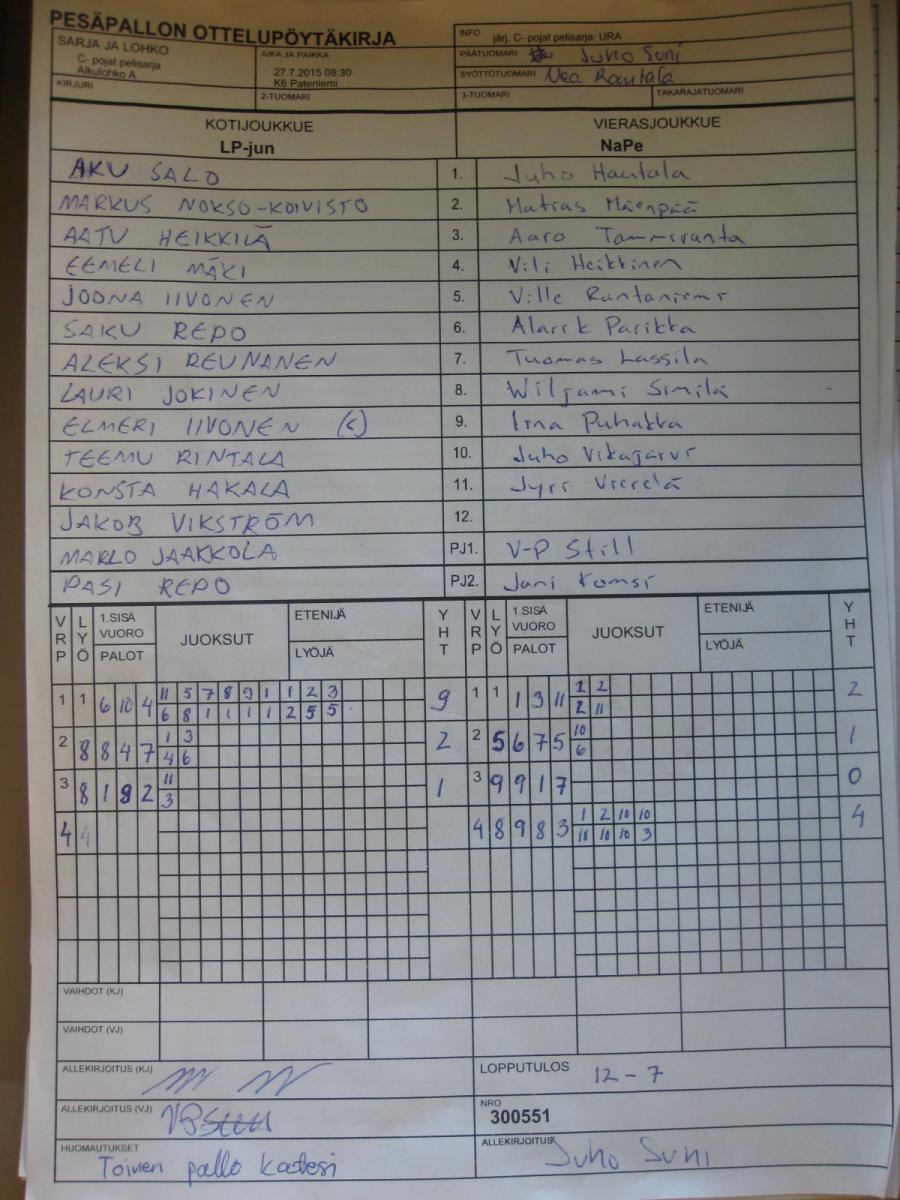 PESÄPALLON OTTELUPÖYTÄKIRJA
SARJA JA LOHKO
C- pojat pelisarja
Alkulohko A
AIKA JA PAIKKA
27.7.2015 08:30
K6 Pateniemi
INFO järj. C- pojat pelisarja: URA
PÄÄTUOMARI Juho Suni
SYÖTTÖTUOMARI Nea Rautala
KIRJURI 2-TUOMARI 3-TUOMARI TAKARAJATUOMARI
KOTIJOUKKUE VIERASJOUKKUE
LP-jun NaPe
AKU SALO 1. Juho Hautala
MARKUS NOKSO-KOIVISTO 2. Matias Mäenpää
AATU HEIKKILÄ 3. Aaro Tammivanta
EEMELI MÄKI 4. Vili Heikkinen
JOONA IIVONEN 5. Ville Rantaniemi
SAKU REPO 6. Alarik Parikka
ALEKSI REUNANEN 7. Tuomas Lassila
LAURI JOKINEN 8. Wiljami Similä
ELMERI IIVONEN (C) 9. Iina Puhakka
TEEMU RINTALA 10. Juho Vikajärvi
KONSTA HAKALA 11. Jyri Vierelä
JAKOB VIKSTRÖM 12.
MARLO JAAKKOLA PJ1. V-P Still
PASI REPO PJ2. Jani Komsi
VRP LYÖ 1.SISÄ VUORO PALOT JUOKSUT ETENIJÄ LYÖJÄ YHT VRP LYÖ 1.SISÄ VUORO PALOT JUOKSUT ETENIJÄ LYÖJÄ YHT
1 1 6 10 4 11 5 7 8 9 1 1 2 3 9 1 1 1 3 11 2 2 2
6 8 1 1 1 1 2 5 5 2 11
2 8 8 4 7 1 3 2 2 5 6 7 5 10 1
4 6 6
3 8 1 9 2 11 1 3 9 9 1 7 0
3
4 4 4 8 9 8 3 1 2 10 10 4
10 10 10 3
VAIHDOT (KJ)
VAIHDOT (VJ)
ALLEKIRJOITUS (KJ) LOPPUTULOS 12 - 7
ALLEKIRJOITUS (VJ) NRO
300551
HUOMAUTUKSET ALLEKIRJOITUS
Toinen pallo katesi Juho Suni